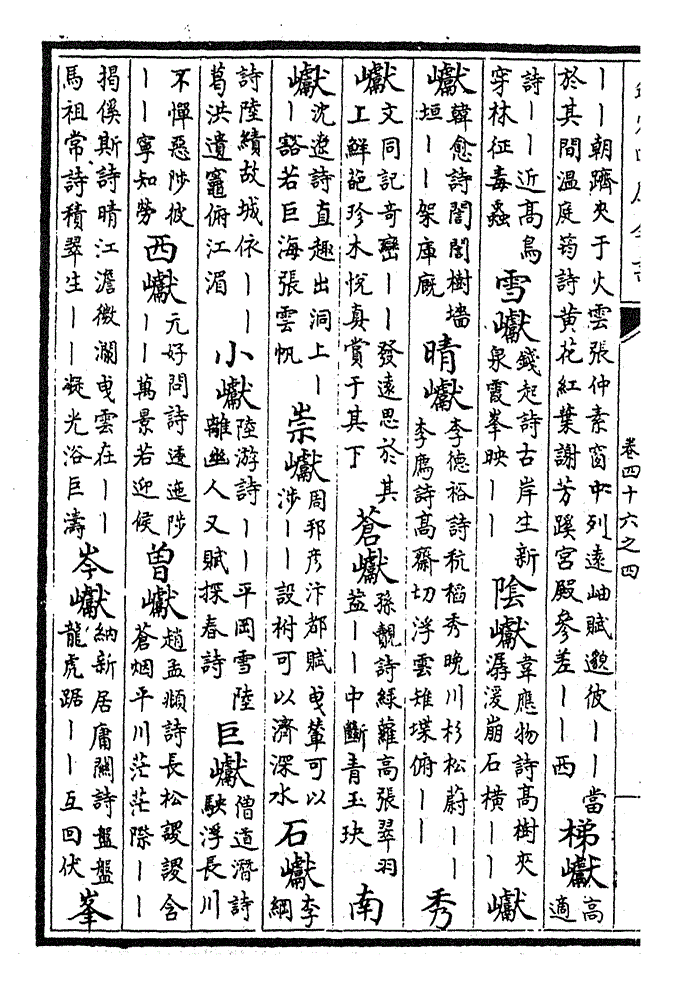 卷四十六之四
｜｜朝躋夾于火雲張仲素窗中列遠岫賦邈彼｜｜當
於其間温庭筠詩黄花紅葉謝芳蹊宫殿參差｜｜西
梯巘
高
適
詩｜｜近高鳥
穿林征毒蟲
雪巘
錢起詩古岸生新
泉霞峯映｜｜
陰巘
韋應物詩髙樹夾
潺湲崩石横｜｜
巘
韓愈詩誾誾樹墻
垣｜｜架庫廐
晴巘
李德裕詩秔稻秀晚川杉松蔚｜｜
李廌詩髙齋切浮雲雉堞俯｜｜
秀
巘
文同記奇巒｜｜發遠思於其
上鮮葩珍木悅真賞于其下
蒼巘
孫覿詩緑蘿高張翠羽
葢｜｜中斷青玉玦
南
巘
沈遼詩直趣出洞上｜
｜豁若巨海張雲帆
崇巘
周邦彦汴都賦曳輦可以
渉｜｜設柎可以濟深水
石巘
李
綱
詩陸績故城依｜｜
葛洪遺竈俯江湄
小巘
陸游詩｜｜平岡雪陸
離幽人又賦探春詩
巨巘
僧道潛詩
駛浮長川
不憚惡陟彼
｜｜寧知勞
西巘
元好問詩逶迤陟
｜｜萬景若迎候
曽巘
趙孟頫詩長松謖謖含
蒼烟平川茫茫際｜｜
揭傒斯詩晴江澹微瀾曳雲在｜｜
馬祖常詩積翠生｜｜凝光浴巨濤
岑巘
納新居庸關詩盤盤
龍虎踞｜｜互回伏
峯